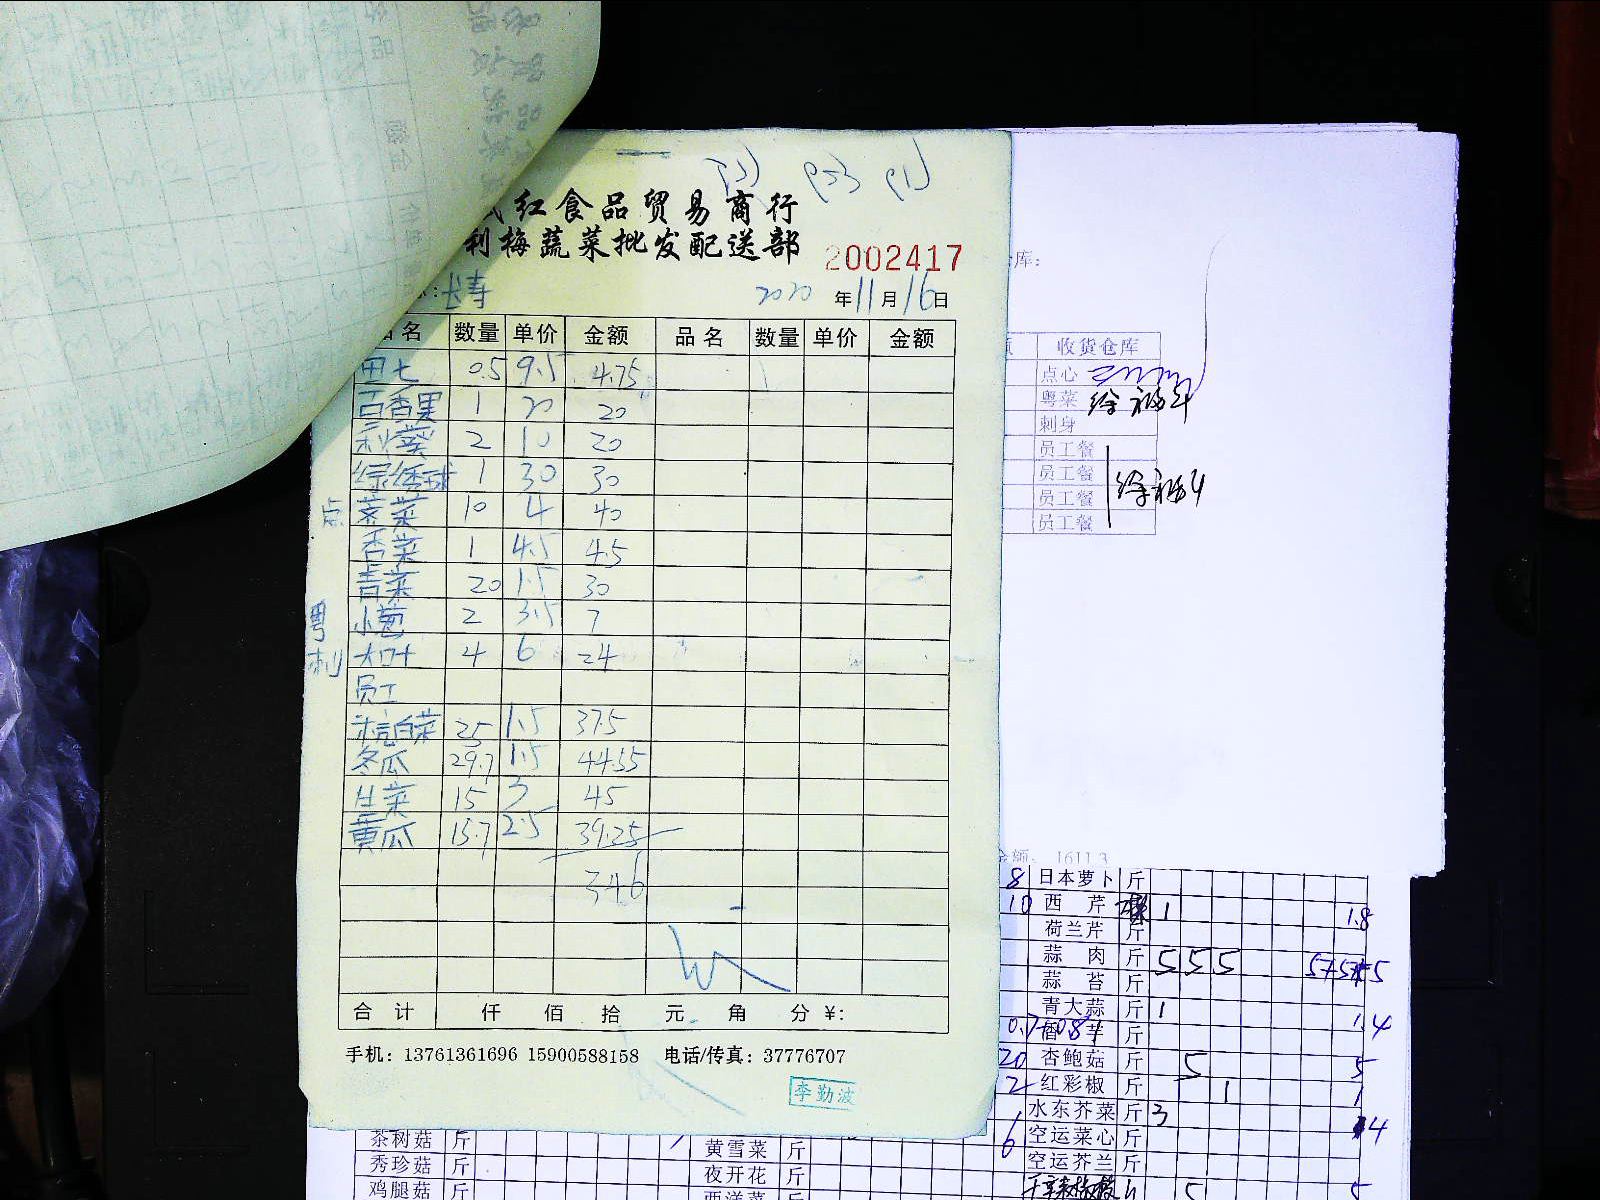 红食品贸易商行
利梅蔬菜批发配送部
2002417
2020年11月16日
名 数量 单价 金额 品名 数量 单价 金额
田七 0.5 9.5 4.75
百香果 1 20 20
秋葵 2 10 20
绿绣球 1 30 30
点 荠菜 10 4 40
香菜 1 4.5 4.5
青菜 20 1.5 30
粤 小葱 2 3.5 7
刺 大叶 4 6 24
员工
杭白菜 25 1.5 37.5
冬瓜 29.7 1.5 44.55
生菜 15 3 45
黄瓜 15.7 2.5 39.25
346
合计 仟 佰 拾 元 角 分 ¥:
手机: 13761361696 15900588158 电话/传真: 37776707
李勤波
库:
收货仓库
点心
粤菜
刺身
员工餐
员工餐
员工餐
员工餐
金额: 1611.3
8 日本萝卜 斤
10 西芹 1 1.8
荷兰芹 斤
蒜肉 斤 5 5 5
蒜苔 斤
青大蒜 斤 1 1.4
香芋 斤
20 杏鲍菇 斤 5 5
2 红彩椒 斤 1 1
水东芥菜 斤 3
6 空运菜心 斤
空运芥兰 斤
5 5
茶树菇 斤 黄雪菜 斤
秀珍菇 斤 夜开花 斤
鸡腿菇 斤 西洋菜 斤